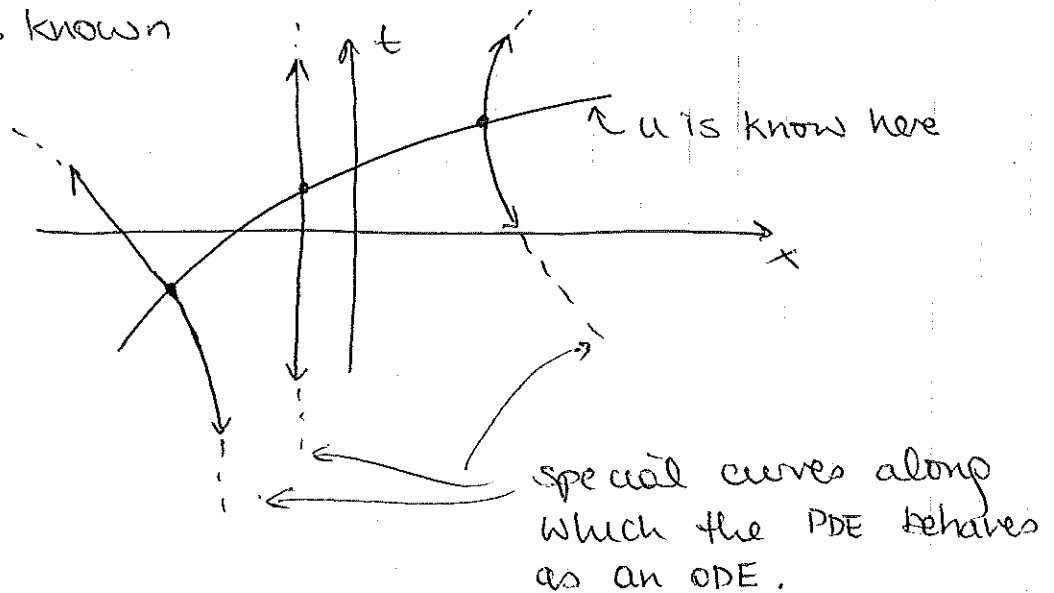 s known
t
u is know here
x
special curves along
which the PDE behaves
as an ODE.